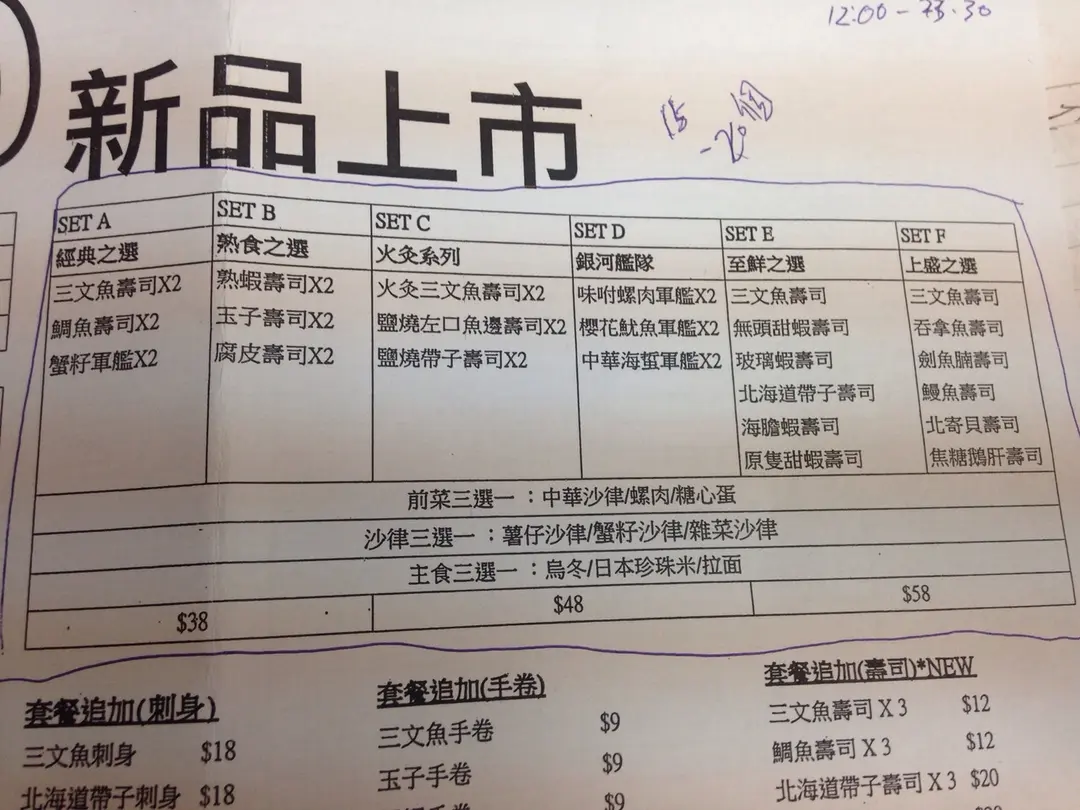 12:00 - 23.30
新品上市
15
-20個
SET A
SET B
SET C
SET D
SET E
SET F
經典之選
熟食之選
火灸系列
銀河艦隊
至鮮之選
上盛之選
三文魚壽司X2
鯛魚壽司X2
蟹籽軍艦X2
熟蝦壽司X2
玉子壽司X2
腐皮壽司X2
火灸三文魚壽司X2
鹽燒左口魚邊壽司X2
鹽燒帶子壽司X2
味咐螺肉軍艦X2
櫻花魷魚軍艦X2
中華海蜇軍艦X2
三文魚壽司
無頭甜蝦壽司
玻璃蝦壽司
北海道帶子壽司
海膽蝦壽司
原隻甜蝦壽司
三文魚壽司
吞拿魚壽司
劍魚腩壽司
鰻魚壽司
北寄貝壽司
焦糖鵝肝壽司
前菜三選一：中華沙律/螺肉/糖心蛋
沙律三選一：薯仔沙律/蟹籽沙律/雜菜沙律
主食三選一：烏冬/日本珍珠米/拉面
$38
$48
$58
套餐追加(刺身)
三文魚刺身 $18
北海道帶子刺身 $18
套餐追加(手卷)
三文魚手卷 $9
玉子手卷 $9
$9
套餐追加(壽司)*NEW
三文魚壽司 X 3 $12
鯛魚壽司 X 3 $12
北海道帶子壽司 X 3 $20